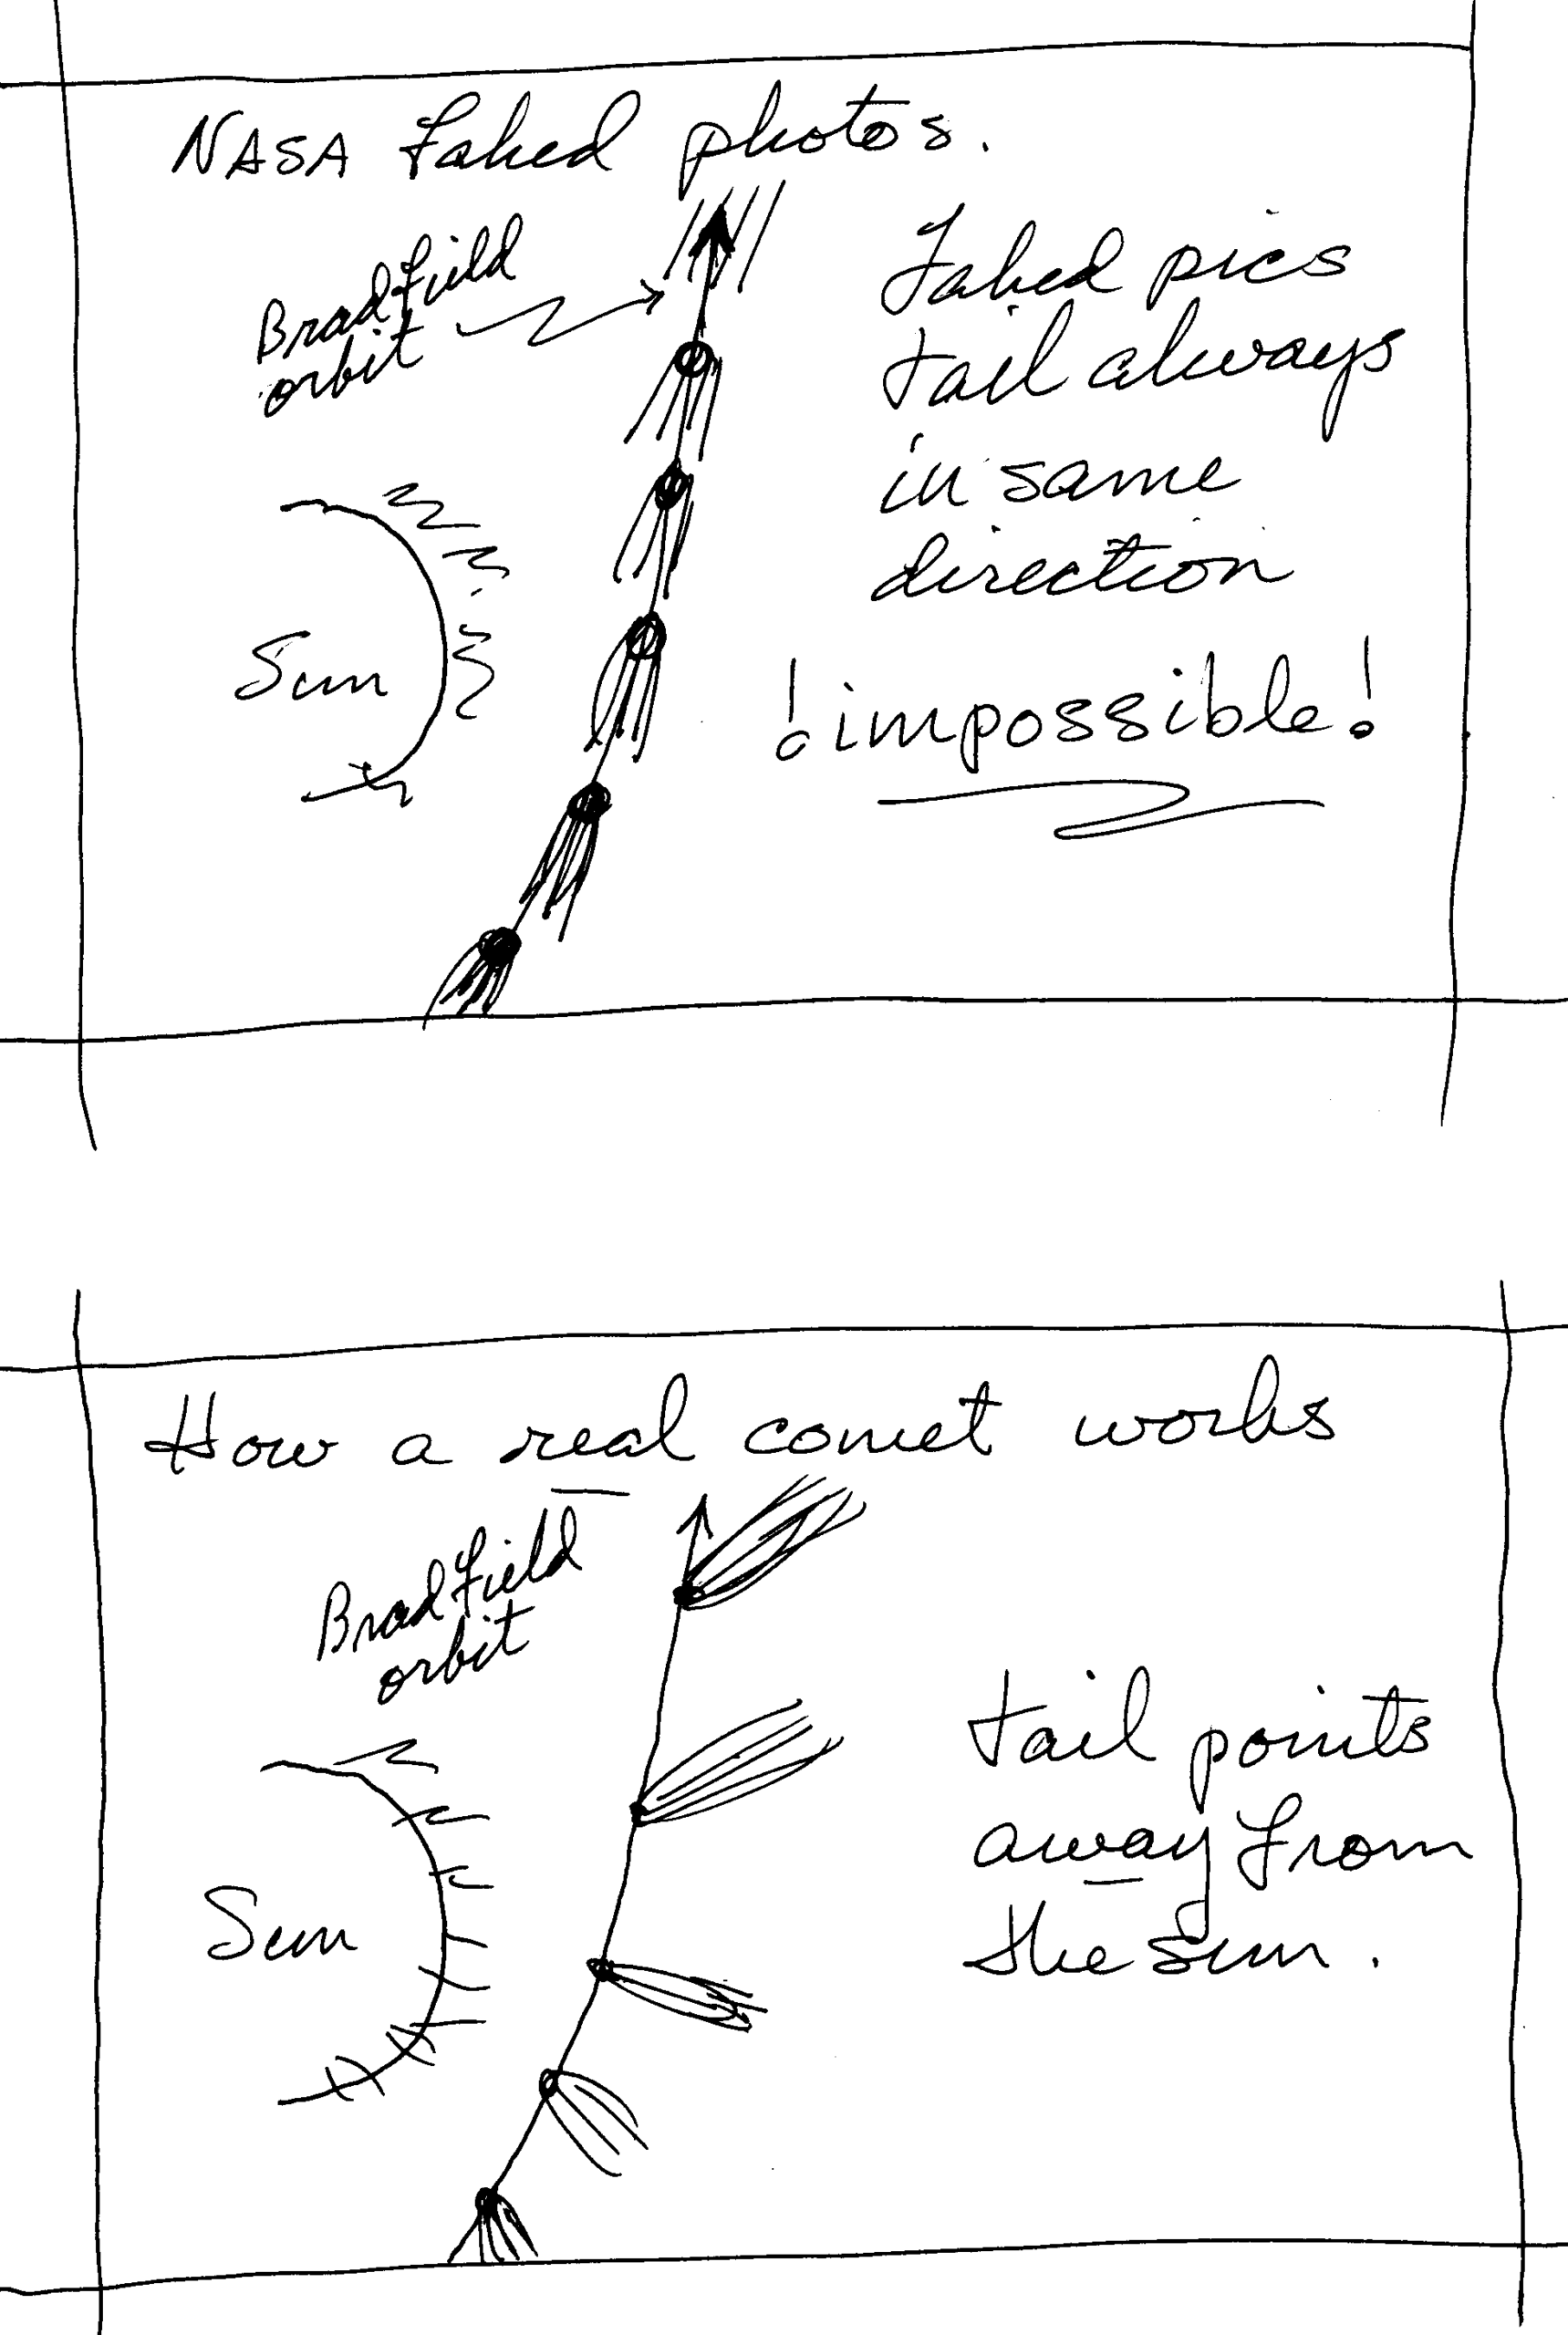 NASA faked photos.
Bradfield
orbit
Faked pics
tail always
in same
direction
! impossible!
Sun
How a real comet works
Bradfield
orbit
tail points
away from
the sun.
Sun